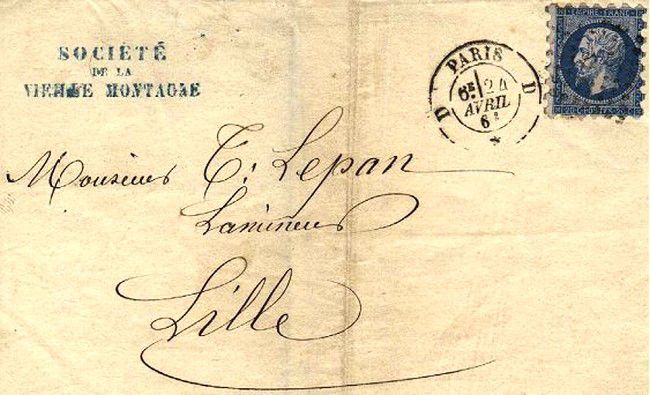 SOCIÉTÉ
DE LA
VIEILLE MONTAGNE
PARIS
D D
6E 24
AVRIL
61
EMPIRE FRANC
20 C POSTES 20 C
Monsieur T. Lepan
Lamineur
Lille